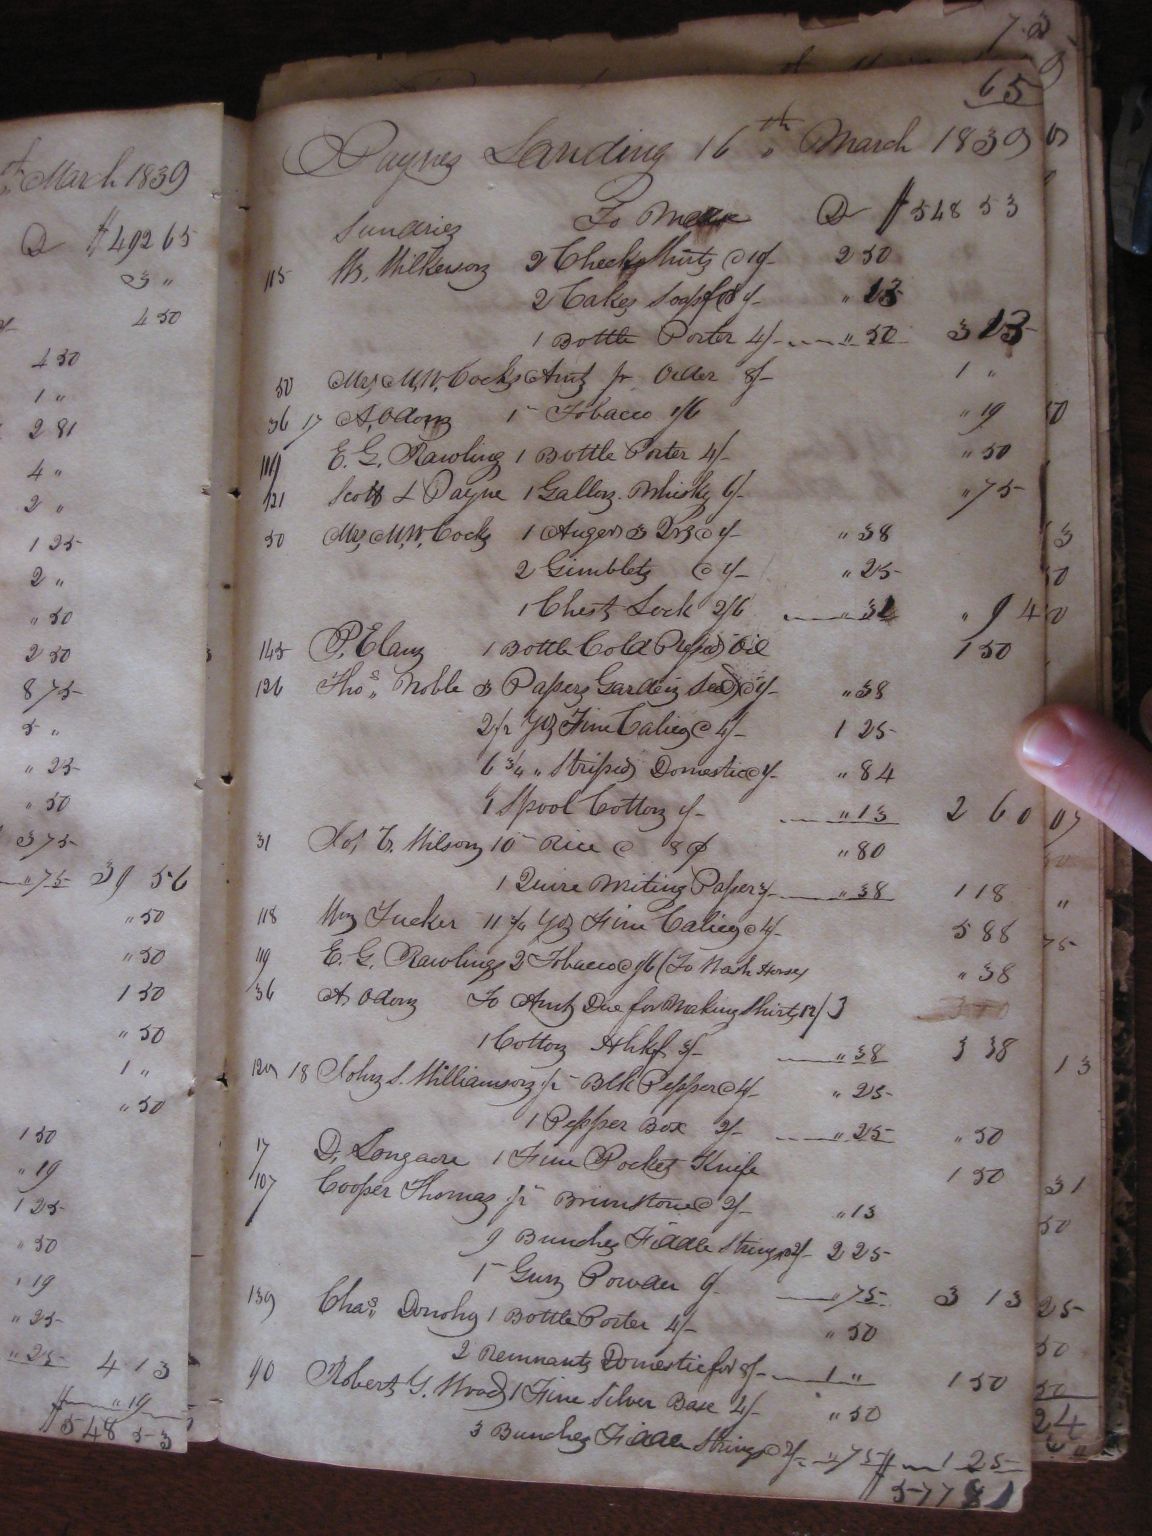 73
65
March 1839
D $492 65
3 "
4 50
4 50
1 "
2 81
4 "
2 "
1 25
2 "
" 50
2 50
8 75
5 "
" 25
" 50
3 75
" 75 39 56
" 50
" 50
1 50
" 50
1 "
" 50
1 50
" 19
1 25
" 50
" 19
" 25
" 25 4 13
" 19
$548 53
Paynes Landing 16th March 1839
Sundries To Mdse D $548 53
115 Wm. Wilkerson 2 Check Shirts @ 10/- 2 50
2 Cakes Soap for 1/- " 13
1 Bottle Porter 4/- " 50 3 13
50 Mrs M. W. Cocks Amt pr Order 8/- 1 "
36 17 A. Odom 1 Tobacco 1/6 " 19
119 E. G. Rawlings 1 Bottle Porter 4/- " 50
121 Scott & Payne 1 Gallon Whisky 6/- " 75
50 Mrs M. W. Cocks 1 Auger 3 Qrs @ 1/- " 38
2 Gimblets @ 1/- " 25
1 Chest Lock 2/6 " 31 " 94
145 P. Elam 1 Bottle Cold Pressed Oil 1 50
126 Thos. Noble 3 Papers Garden Seed @ 1/- " 38
2 1/2 Yds Fine Calico @ 4/- 1 25
6 3/4 " Striped Domestic @ 1/- " 84
1 Spool Cotton 1/- " 13 2 60
31 Wilson 10 Rice @ 8 ¢ " 80
1 Quire Writing Paper 3/- " 38 1 18
118 Wm Tucker 11 3/4 Yds Fine Calico @ 4/- 5 88
119 E. G. Rawlings 2 Tobacco @ 1/6 (To Wash Horses " 38
36 A. Odom To Amt Due for Making Shirts 12/ 3
1 Cotton Hhkf 3/- " 38 3 38
120 18 John S. Williamson Blk Pepper @ 4/- " 25
1 Pepper Box 2/- " 25 " 50
17 D. Longacre 1 Fine Pocket Knife 1 50
107 Cooper Thomas Brimstone @ 2/- " 13
9 Bunches Fiddle Strings @ 2/- 2 25
1 Gun Powder 6/- " 75 3 13
139 Chas. Donohy 1 Bottle Porter 4/- " 50
2 Remnants Domestic for 8/- 1 " 1 50
90 Robert G. Wood 1 Fine Silver Base 4/- " 50
3 Bunches Fiddle Strings @ 2/- " 75 1 25
$577 81